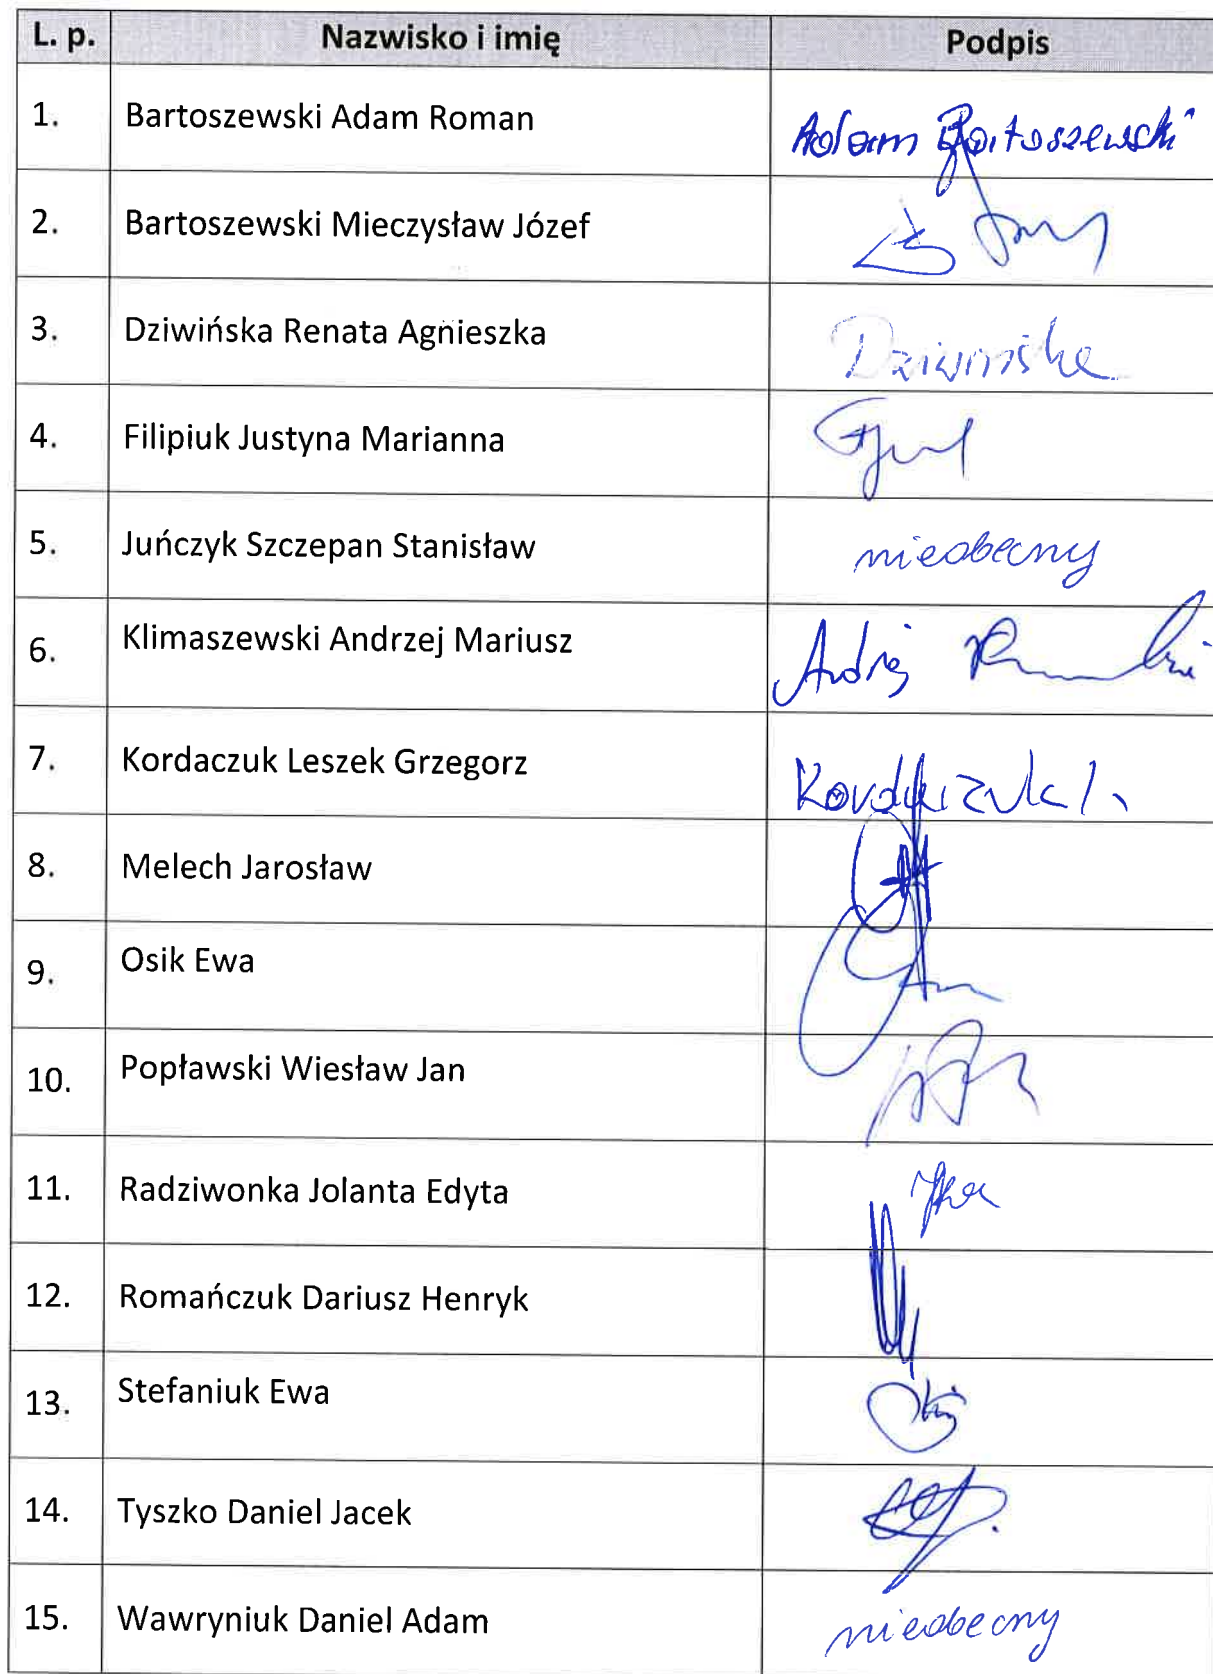 L. p. Nazwisko i imię Podpis
1. Bartoszewski Adam Roman Adam Bartoszewski
2. Bartoszewski Mieczysław Józef
3. Dziwińska Renata Agnieszka Dziwińska
4. Filipiuk Justyna Marianna
5. Juńczyk Szczepan Stanisław nieobecny
6. Klimaszewski Andrzej Mariusz
7. Kordaczuk Leszek Grzegorz Kordaczuk L.
8. Melech Jarosław
9. Osik Ewa
10. Popławski Wiesław Jan
11. Radziwonka Jolanta Edyta
12. Romańczuk Dariusz Henryk
13. Stefaniuk Ewa
14. Tyszko Daniel Jacek
15. Wawryniuk Daniel Adam nieobecny